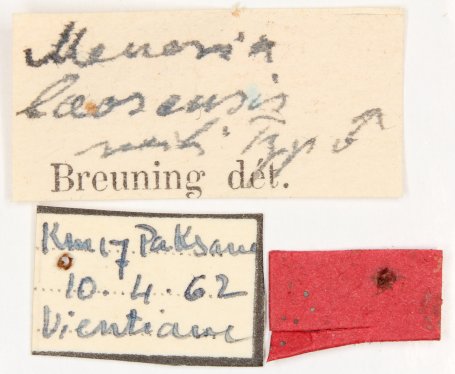 Menesia
laosensis
mihi Typ ♂
Breuning dét.
Km 17 Paksane
10.4.62
Vientiane